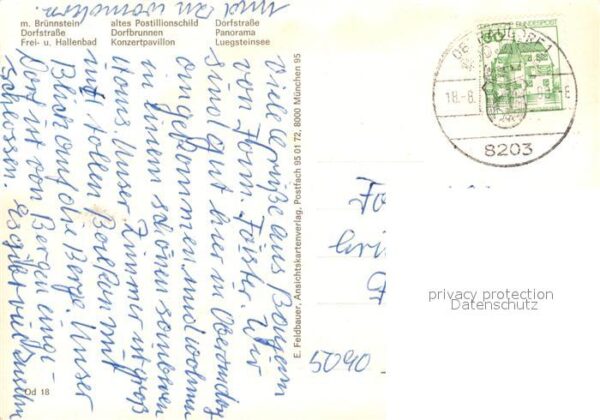 m. Brünnstein altes Postillionschild Dorfstraße
Dorfstraße Dorfbrunnen Panorama
Frei- u. Hallenbad Konzertpavillon Luegsteinsee
Viele Grüße aus Bayern
von Fam. Wir
sind gut hier in Oberaudorf
angekommen und wohnen
in einem schönen sauberen
Haus. Unser Zimmer ist groß
mit tollen Balkon mit
Blick auf die Berge. Unser
Dorf ist von Bergen einge-
schlossen. Es gibt viel zu sehen
und zu wandern.
Od 18
E. Feldbauer, Ansichtskartenverlag, Postfach 95 01 72, 8000 München 95
DEUTSCHE BUNDESPOST
OBERAUDORF 1
18.-8.
8203
5090
privacy protection
Datenschutz